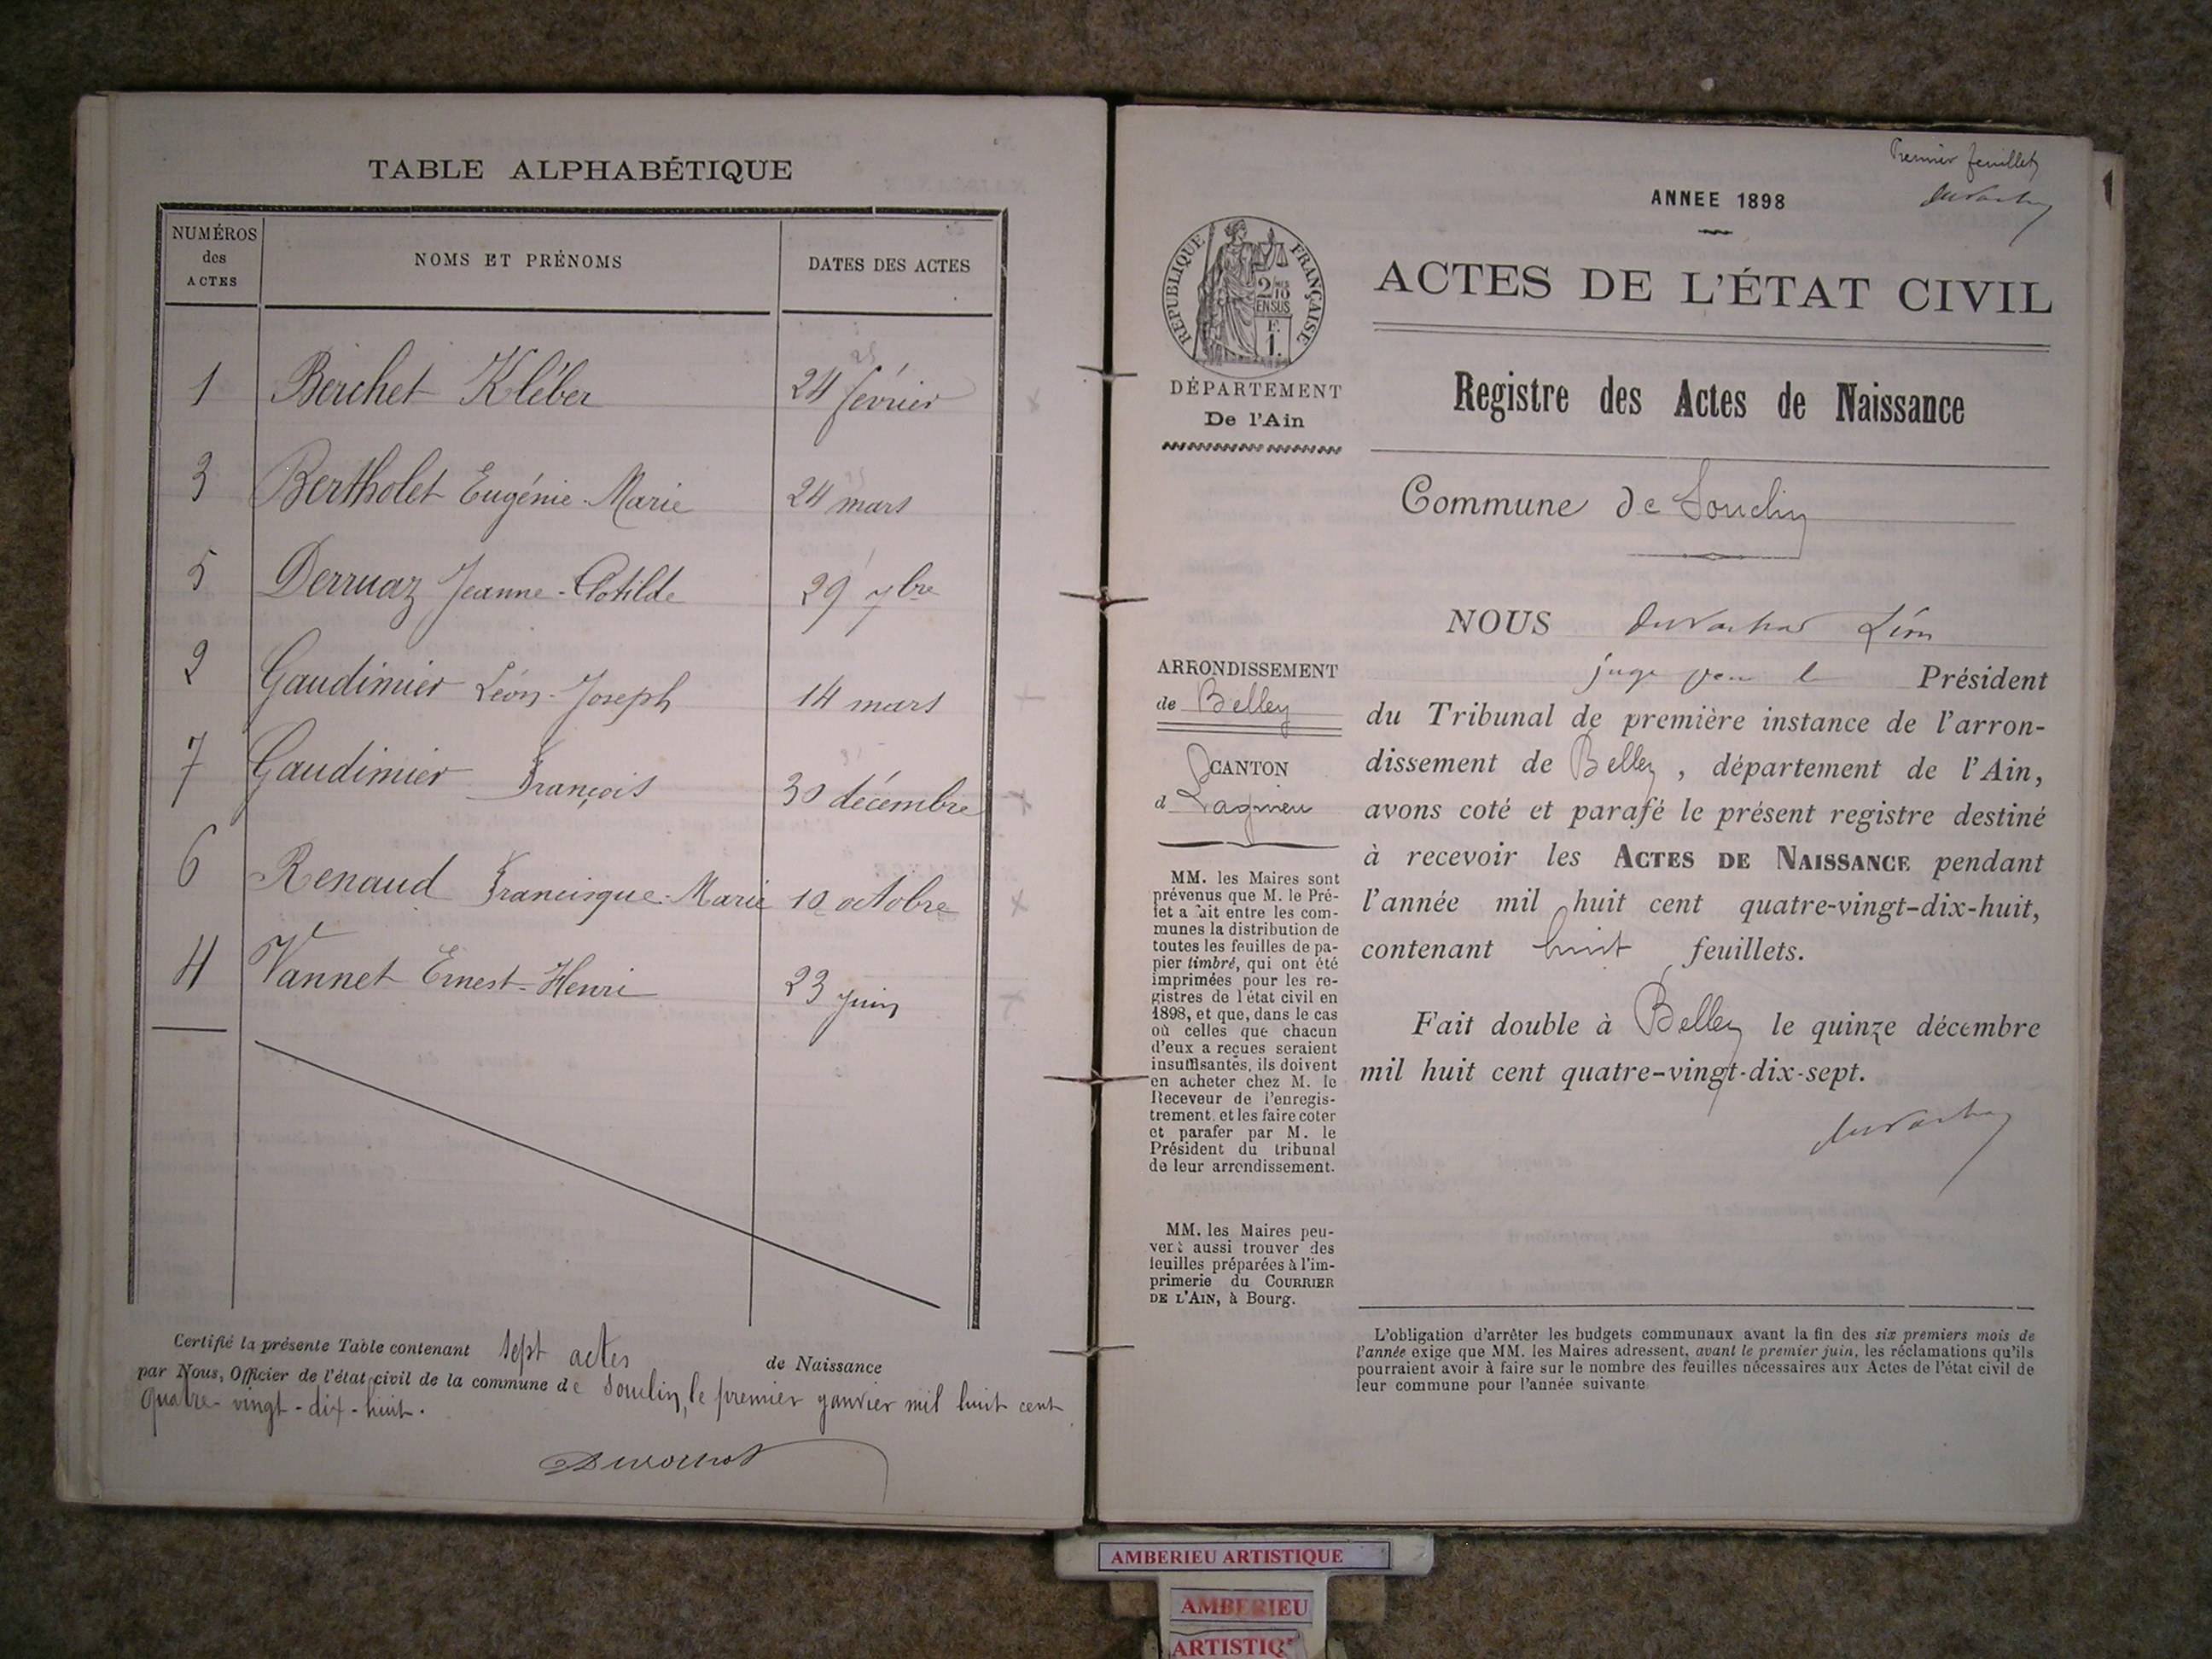 TABLE ALPHABÉTIQUE
NUMÉROS des ACTES
NOMS ET PRÉNOMS
DATES DES ACTES
1 Berchet Kléber 24 février
3 Bertholet Eugénie-Marie 24 mars
5 Derruaz Jeanne-Clotilde 29 7bre
2 Gaudimier Léon-Joseph 14 mars
7 Gaudimier François 30 décembre
6 Renaud Francisque-Marie 10 octobre
4 Vannet Ernest-Henri 23 juin
Certifié la présente Table contenant sept actes de Naissance
par Nous, Officier de l'état civil de la commune de Souclin, le premier janvier mil huit cent
quatre-vingt-dix-huit.
Premier feuillet
ANNEE 1898
RÉPUBLIQUE FRANÇAISE
2/10
EN SUS
F.
1.
ACTES DE L'ÉTAT CIVIL
DÉPARTEMENT
De l'Ain
Registre des Actes de Naissance
Commune de Souclin
ARRONDISSEMENT
de Belley
CANTON
d Lagnieu
MM. les Maires sont
prévenus que M. le Pré-
fet a fait entre les com-
munes la distribution de
toutes les feuilles de pa-
pier timbré, qui ont été
imprimées pour les re-
gistres de l'état civil en
1898, et que, dans le cas
où celles que chacun
d'eux a reçues seraient
insuffisantes, ils doivent
en acheter chez M. le
Receveur de l'enregis-
trement, et les faire coter
et parafer par M. le
Président du tribunal
de leur arrondissement.
MM. les Maires peu-
vent aussi trouver des
feuilles préparées à l'im-
primerie du COURRIER
DE L'AIN, à Bourg.
NOUS Léon
juge pour le Président
du Tribunal de première instance de l'arron-
dissement de Belley, département de l'Ain,
avons coté et parafé le présent registre destiné
à recevoir les ACTES DE NAISSANCE pendant
l'année mil huit cent quatre-vingt-dix-huit,
contenant huit feuillets.
Fait double à Belley le quinze décembre
mil huit cent quatre-vingt-dix-sept.
L'obligation d'arrêter les budgets communaux avant la fin des six premiers mois de
l'année exige que MM. les Maires adressent, avant le premier juin, les réclamations qu'ils
pourraient avoir à faire sur le nombre des feuilles nécessaires aux Actes de l'état civil de
leur commune pour l'année suivante
AMBERIEU ARTISTIQUE
AMBERIEU
ARTISTIQ